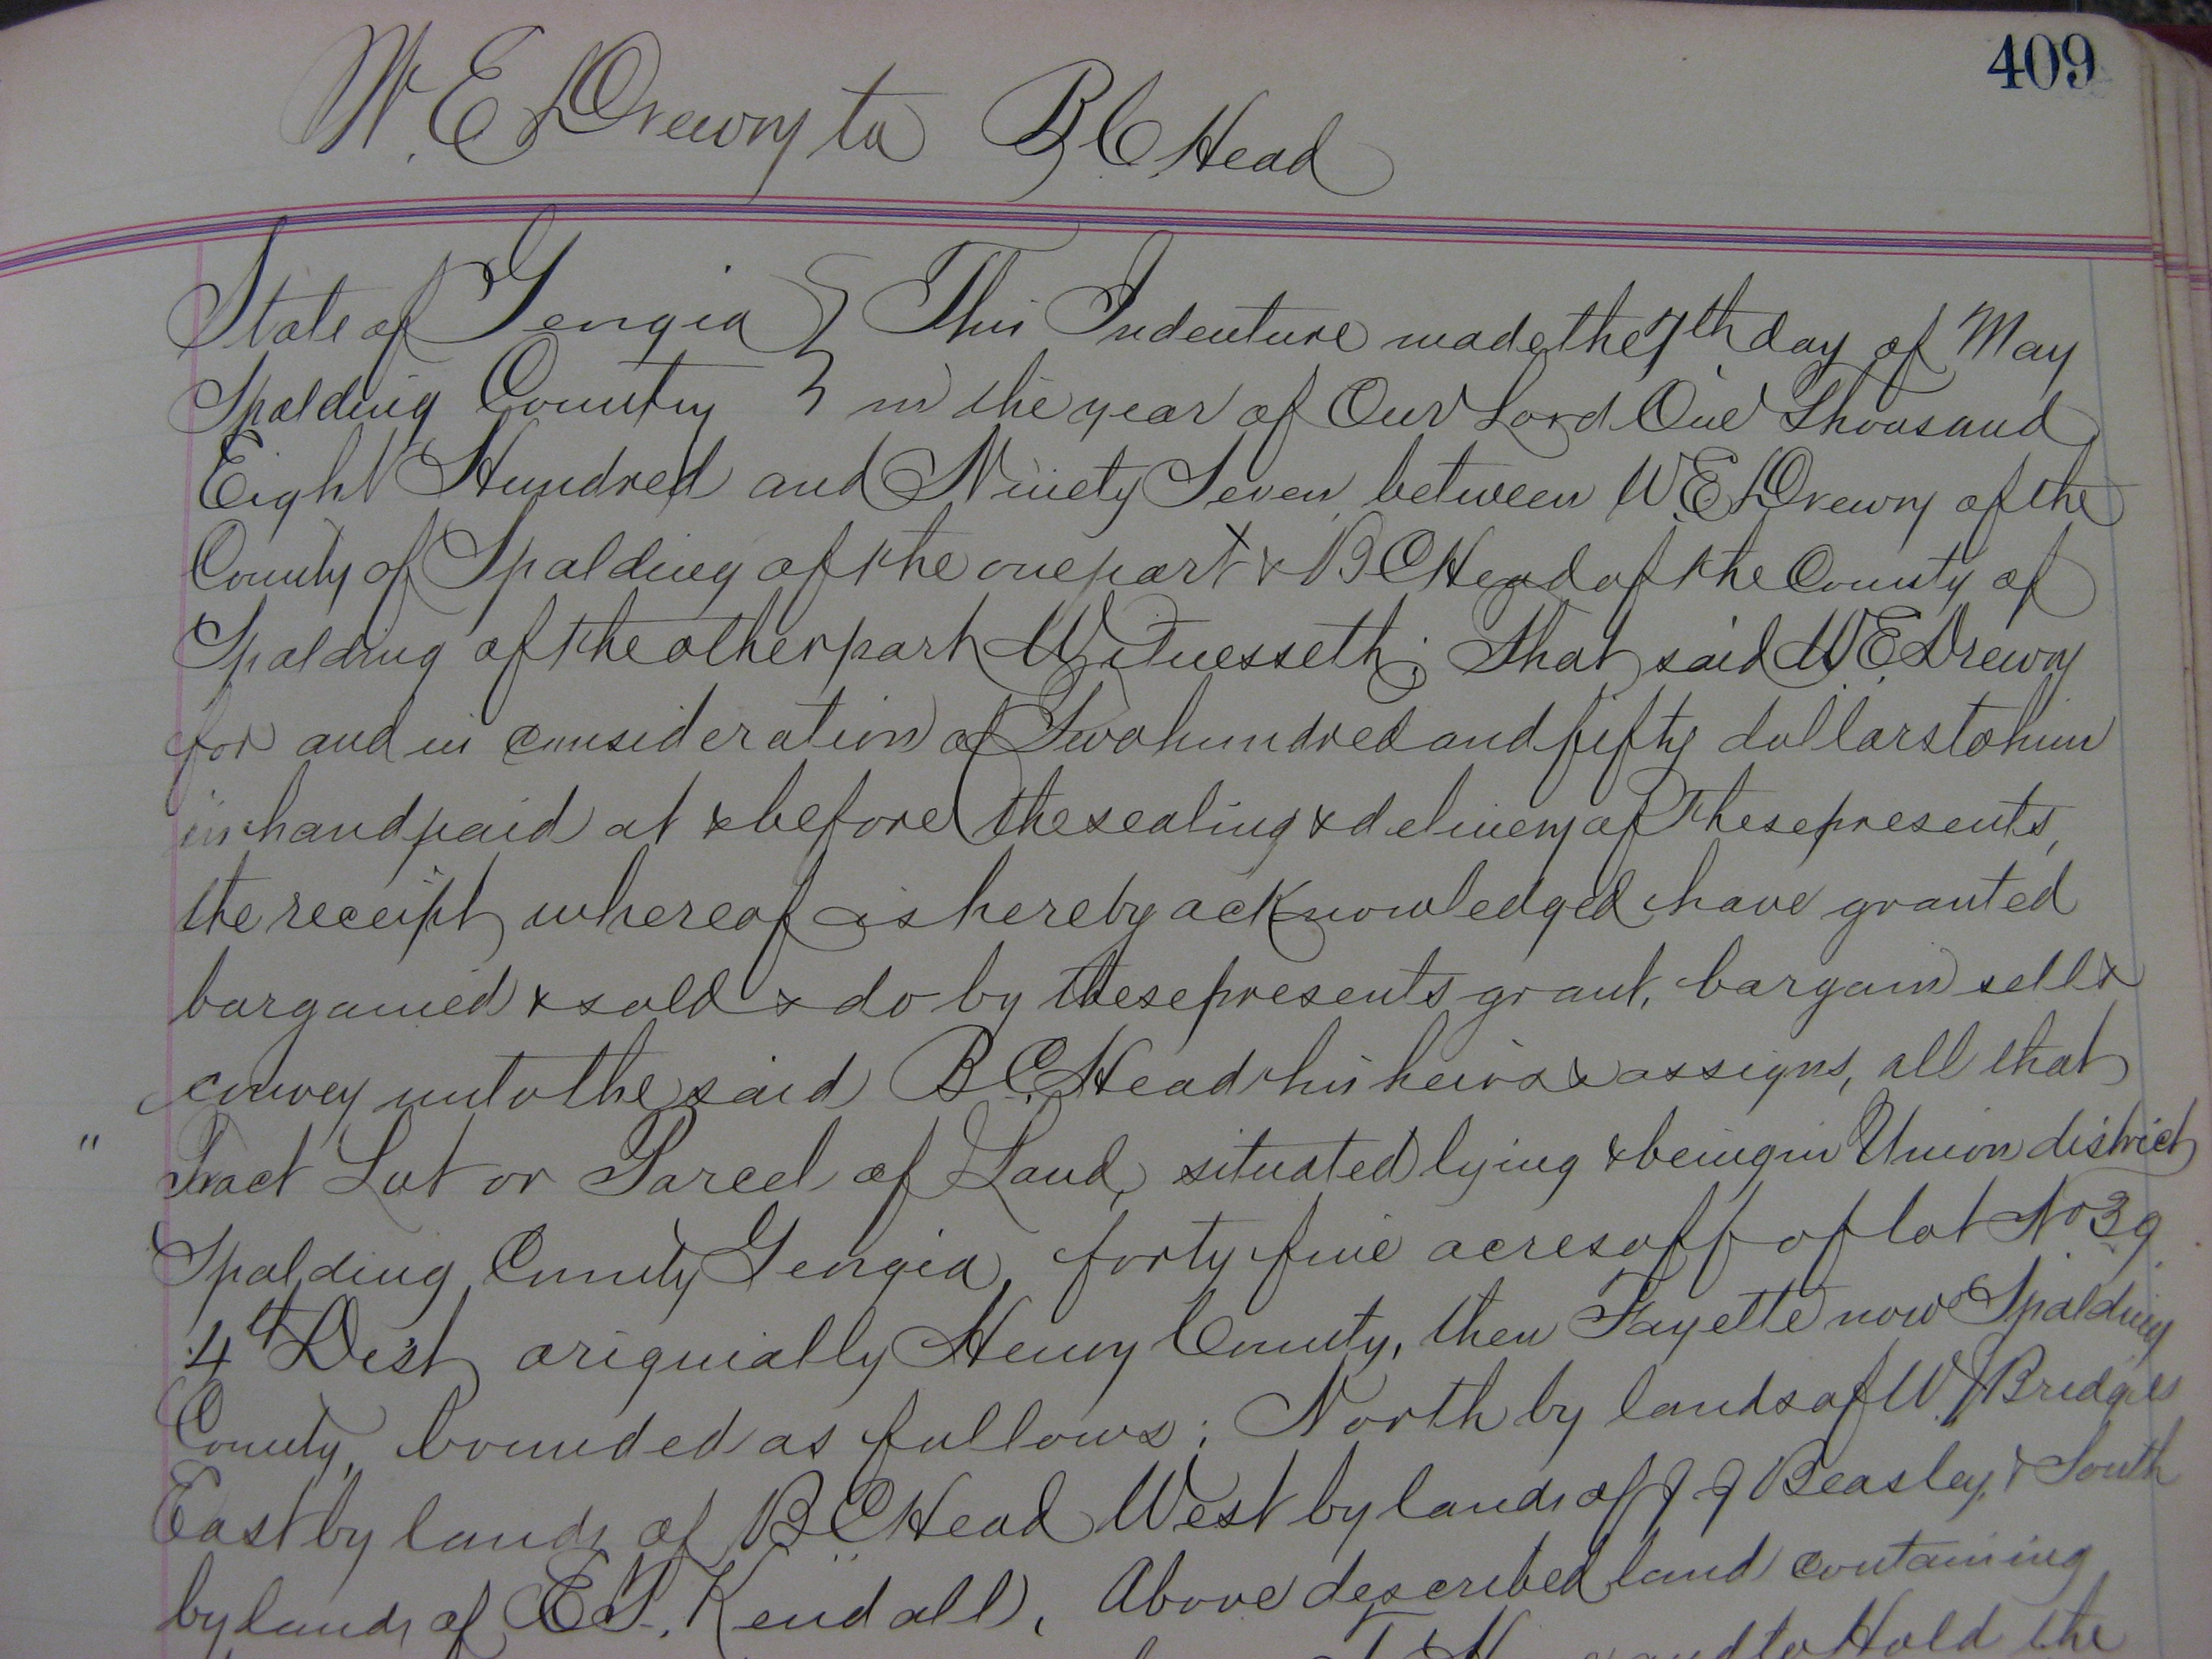 409
W. E. Drewry to B. C. Head
State of Georgia } This Indenture made the 7th day of May
Spalding County } in the year of Our Lord One Thousand
Eight Hundred and Ninety Seven, between W. E. Drewry of the
County of Spalding of the one part & B C Head of the County of
Spalding of the other part Witnesseth; That said W. E. Drewry
for and in consideration of Two hundred and fifty dollars to him
in hand paid at & before the sealing & delivery of These presents,
the receipt whereof is hereby acknowledged have granted
bargained & sold & do by these presents grant, bargain sell &
convey unto the said B. C. Head his heirs & assigns, all that
" Tract Lot or Parcel of Land, situated lying & being in Union district
Spalding County Georgia, forty five acres off of lot No 39.
4th Dist originially Henry County, then Fayette now Spalding
County, bounded as follows; North by lands of W. Bridges
East by lands of B. C. Head West by lands of J J Beasley, & South
by lands of Kendall, Above described land containing
and to Hold the